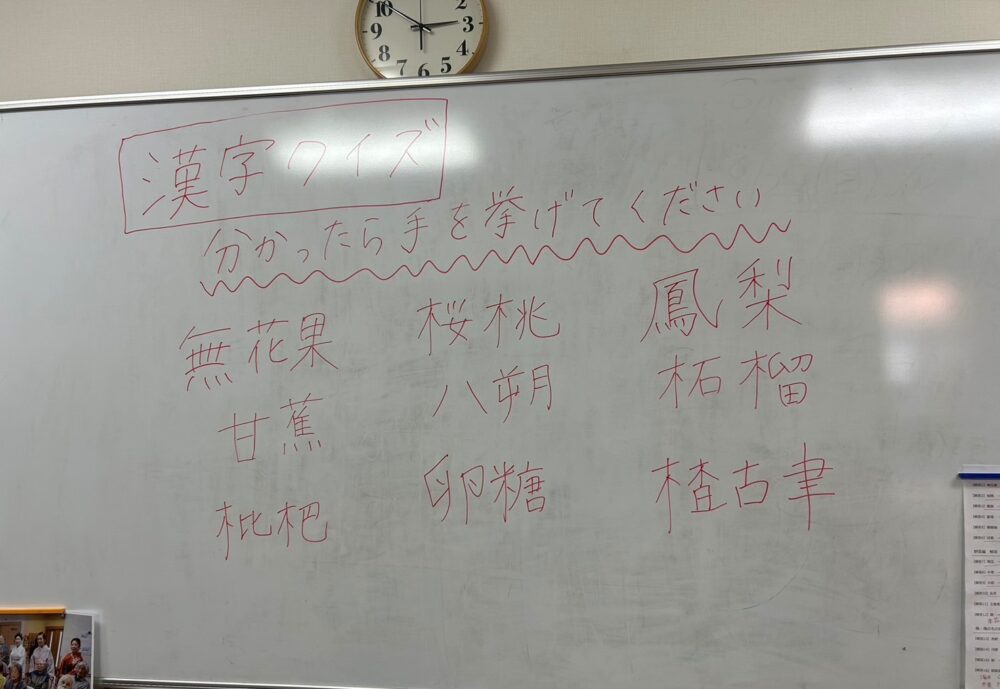 10 2
9 3
8 4
7 6 5
漢字クイズ
分かったら手を挙げてください
無花果 桜桃 鳳梨
甘蕉 八朔 柘榴
枇杷 卵糖 楂古聿